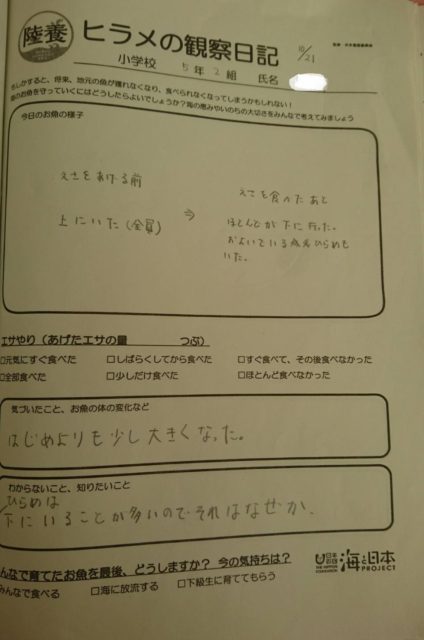 陸養
ヒラメの観察日記
10/21
小学校 5年2組 氏名
もしかすると、将来、地元の魚が獲れなくなり、食べられなくなってしまうかもしれない！
のお魚を守っていくにはどうしたらよいでしょうか？海の恵みやいのちの大切さをみんなで考えてみましょう
今日のお魚の様子
えさをあげる前
上にいた(全員)
⇒
えさを食べたあと
ほとんどが下に行った。
およいでいる ひらめも
いた。
エサやり（あげたエサの量 つぶ）
□元気にすぐ食べた □しばらくしてから食べた □すぐ食べて、その後食べなかった
□全部食べた □少しだけ食べた □ほとんど食べなかった
気づいたこと、お魚の体の変化など
はじめよりも少し大きくなった。
わからないこと、知りたいこと
ひらめは
下にいることが多いのでそれはなぜか。
んなで育てたお魚を最後、どうしますか？ 今の気持ちは？
みんなで食べる □海に放流する □下級生に育ててもらう
日本財団
THE NIPPON FOUNDATION
海と日本
PROJECT